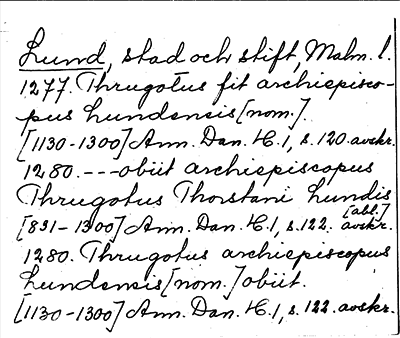 Lund, stad och stift, Malm. l.
1277. Thrugotus fit archiepisco-
pus Lundensis [nom.].
[1130-1300] Ann. Dan. H. 1, s. 120. avskr.
1280. --- obiit archiepiscopus
Thrugotus Thorstani Lundis
[abl.]
[891-1300] Ann. Dan. H. 1, s. 122. avskr.
1280. Thrugotus archiepiscopus
Lundensis [nom.] obiit.
[1130-1300] Ann. Dan. H. 1, s. 122. avskr.